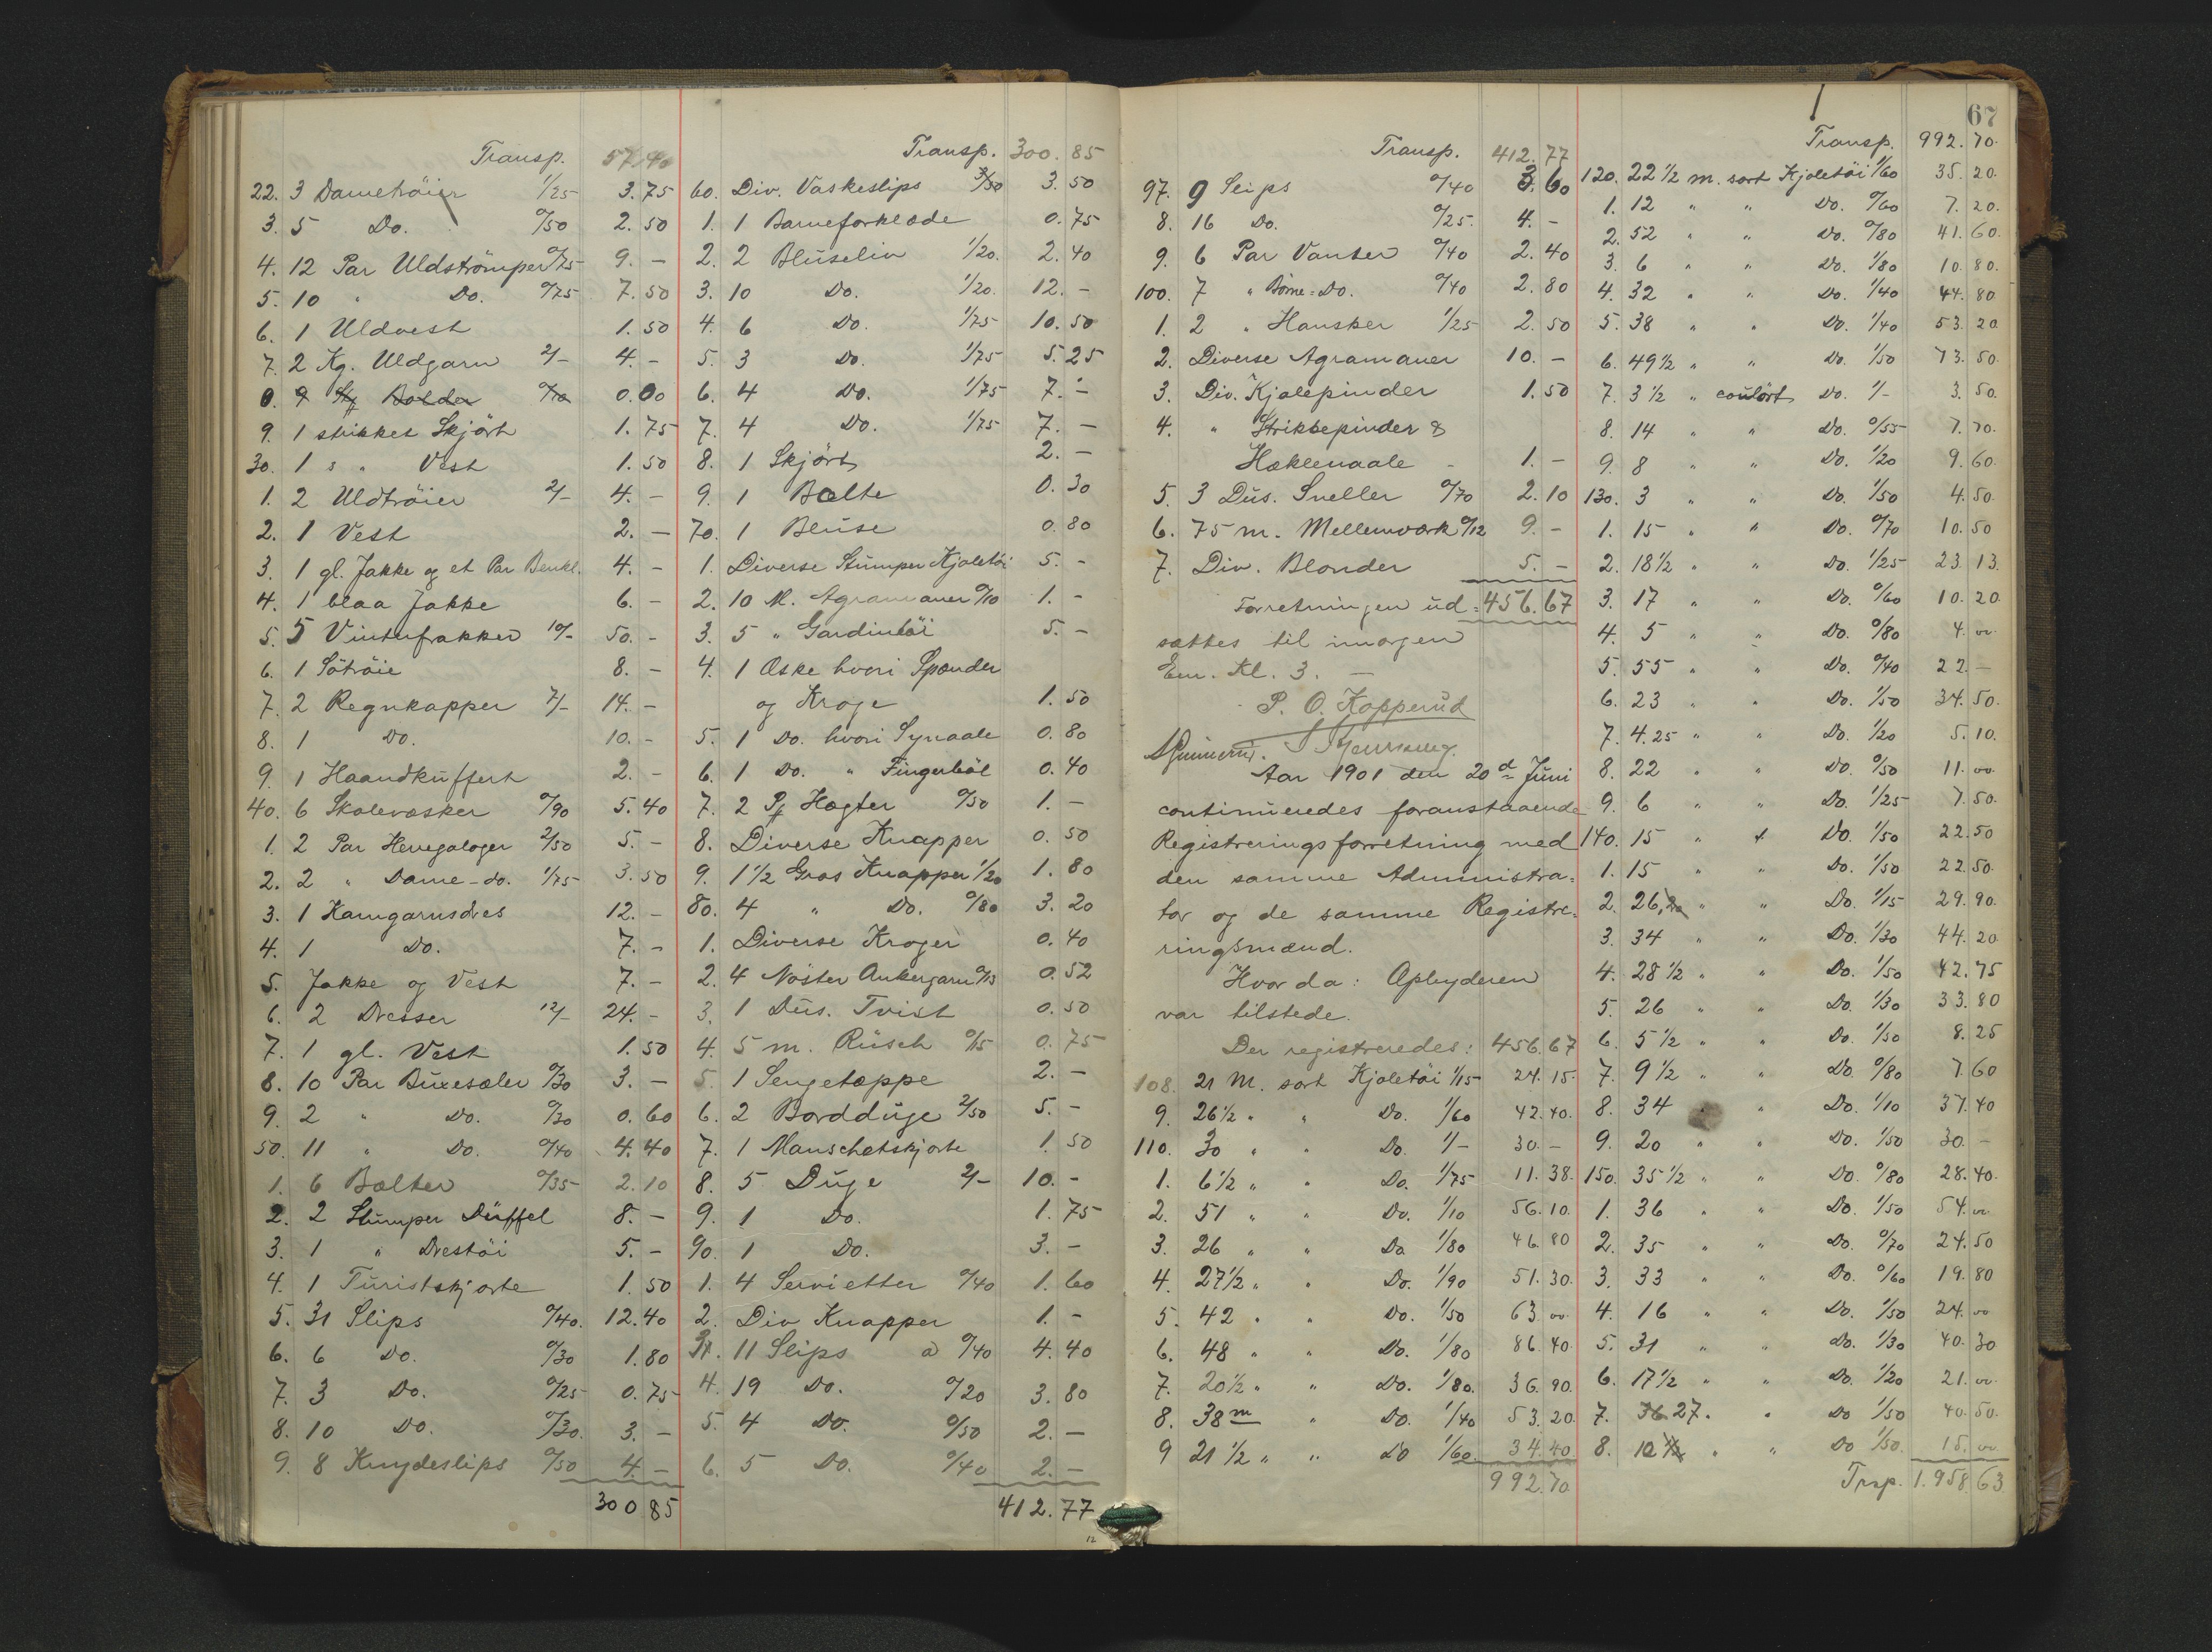 Transp. 57.40
22. 3 Dametröier 1/25 3.75
3. 5 Do. 0/50 2.50
4. 12 Par Uldströmper 0/75 9.-
5. 10 " Do. 0/75 7.50
6. 1 Uldvest 1.50
7. 2 Kg. Uldgarn 2/- 4.-
9. 1 strikket Skjört 1.75
30. 1 s " Vest 1.50
1. 2 Uldtröier 2/- 4.-
2. 1 Vest 2.-
3. 1 gl. Jakke og et Par Benkl. 4.-
4. 1 blaa Jakke 6.-
5. 5 Vinterfrakker 10/- 50.-
6. 1 Sötröie 8.-
7. 2 Regnkapper 7/- 14.-
8. 1 Do. 10.-
9. 1 Haandkuffert 2.-
40. 6 Skolevæsker 0/90 5.40
1. 2 Par Herregaloger 2/50 5.-
2. 2 " Dame-do. 1/75 3.50
3. 1 Kamgarnsdres 12.-
4. 1 Do. 7.-
5. Jakke og Vest 7.-
6. 2 Dresser 12/- 24.-
7. 1 gl. Vest 1.50
8. 10 Par Buxesæler 0/30 3.-
9. 2 " Do. 0/30 0.60
50. 11 " Do. 0/40 4.40
1. 6 Bælter 0/35 2.10
2. 2 Stumper Düffel 8.-
3. 1 " Drestöi 5.-
4. 1 Turistskjorte 1.50
5. 31 Slips 0/40. 12.40
6. 6 Do. 0/30 1.80
7. 3 Do. 0/25 0.75
8. 10 Do. 0/30. 3.-
9. 8 Knydeslips 0/50 4.-
300.85
Transp. 300.85
60. Div. Vaskeslips 3/50 3.50
1. 1 Barneforklæde 0.75
2. 2 Bluseliv 1/20. 2.40
3. 10 Do. 1/20. 12.-
4. 6 Do. 1/75 10.50
5. 3 Do. 1/75 5.25
6. 4 Do. 1/75 7.-
7. 4 Do. 1/75 7.-
8. 1 Skjört 2.-
9. 1 Bælte 0.30
70. 1 Bluse 0.80
1. Diverse Stumper Kjoletöi 5.-
2. 10 M. Agramaner 0/10 1.-
3. 5 " Gardintöi 5.-
4. 1 Æske hvori Spænder
og Kroge 1.50
5. 1 Do. hvori Synaale 0.80
6. 1 Do. " Fingerböl 0.40
7. 2 Pf Hægter 0/50 1.-
8. Diverse Knapper 0.50
9. 1 1/2 Gros Knapper 1/20 1.80
80. 4 " Do. 0/80 3.20
1. Diverse Kroger 0.40
2. 4 Nöster Ankergarn 0/13 0.52
3. 1 Dus. Tvist 0.50
4. 5 m. Rüsch 0/15 0.75
5. 1 Sengetæppe 2.-
6. 2 Bordduge 2/50 5.-
7. 1 Manschetskjorte 1.50
8. 5 Duge 2/- 10.-
9. 1 Do. 1.75
90. 1 Do. 3.-
1. 4 Servietter 0/40 1.60
2. Div Knapper 1.-
11 Slips a 0/40 4.40
4. 19 Do. 0/20 3.80
5. 4 Do. 0/50 2.-
6. 5 Do. 0/40 2.-
412.77
12
Transp. 412.77
97. 9 Slips 0/40 3.60
8. 16 Do. 0/25. 4.-
9. 6 Par Vanter 0/40 2.40
100. 7 " Börne=Do. 0/40 2.80
1. 2 " Hansker 1/25 2.50
2. Diverse Agramaner 10.-
3. Div. Kjolepinder 1.50
4. " Strikkepinder &
Hæklenaale 1.-
5. 3 Dus. Sneller 0/70 2.10
6. 75 m. Mellemværk 0/12 9.-
7. Div. Blonder 5.-
Forretningen ud= 456.67
sættes til imorgen
Em. Kl. 3.-
P. O. Kopperud
Aar 1901 den 20d Juni
continueredes foranstaaende
Registreringsforretning med
den samme Administra=
tor og de samme Registre=
ringsmænd.
Hvor da: Opbyderen
var tilstede.
Der registreredes: 456.67
108. 21 M. sort Kjoletöi 1/15 24.15
9. 26 1/2 " " Do. 1/60 42.40.
110. 30 " " Do. 1/- 30.-
1. 6 1/2 " " Do. 1/75 11.38.
2. 51 " " Do. 1/10 56.10.
3. 26 " " Do 1/80 46.80
4. 27 1/2 " " Do. 1/90 51.30.
5. 42 " " Do. 1/50 63.00
6. 48 " " Do. 1/80 86.40
7. 20 1/2 " " Do. 1/80. 36.90.
8. 38 m " Do. 1/40 53.20.
9 21 1/2 " " Do 1/60. 34.40
992.70
67
Transp. 992.70
120. 22 1/2 m. sort Kjoletöi 1/60 35.20.
1. 12 " " Do. 0/60 7.20.
2. 52 " " Do. 0/80 41.60.
3. 6 " " Do. 1/80 10.80.
4. 32 " " Do. 1/40 44.80
5. 38 " " Do. 1/40 53.20
6. 49 1/2 " " Do. 1/50 73.50.
7. 3 1/2 " coulört Do. 1/- 3.50.
8. 14 " " Do. 0/55 7.70.
9. 8 " " Do. 1/20 9.60.
130. 3 " " Do. 1/50 4.50.
1. 15 " " Do. 0/70 10.50
2. 18 1/2 " " Do. 1/25 23.13.
3. 17 " " Do. 0/60 10.20.
4. 5 " " Do. 0/80 4.00
5. 55 " " Do. 0/40 22.-
6. 23 " " Do. 1/50 34.50.
7. 4.25 " " Do. 1/20 5.10.
8. 22 " " Do. 0/50 11.00.
9. 6 " " Do. 1/25 7.50.
140. 15 " " Do. 1/50 22.50
1. 15 " " Do. 1/50 22.50.
2. 26 " " Do. 1/15 29.90.
3. 34 " " Do. 1/30 44.20
4. 28 1/2 " " Do. 1/50 42.75
5. 26 " " Do. 1/30 33.80
6. 5 1/2 " " Do. 1/50 8.25
7. 9 1/2 " " Do. 0/80 7.60
8. 34 " " Do. 1/10 37.40
9. 20 " " Do. 1/50 30.-
150. 35 1/2 " " Do. 0/80 28.40.
1. 36 " " Do. 1/50 54.00
2. 35 " " Do. 0/70 24.50
3. 33 " " Do. 0/60 19.80
4. 16 " " Do. 1/50 24.00
5. 31 " " Do. 1/30 40.30
6. 17 1/2 " " Do. 1/20 21.00.
7. 27. " Do 1/50 40.50.
8. 10 " " Do 1/50. 15.00
Trsp. 1.958.63